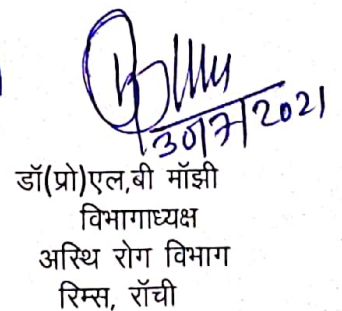 2021
डॉ(प्रो)एल,बी मॉझी
विभागाध्यक्ष
अस्थि रोग विभाग
रिम्स, रॉची